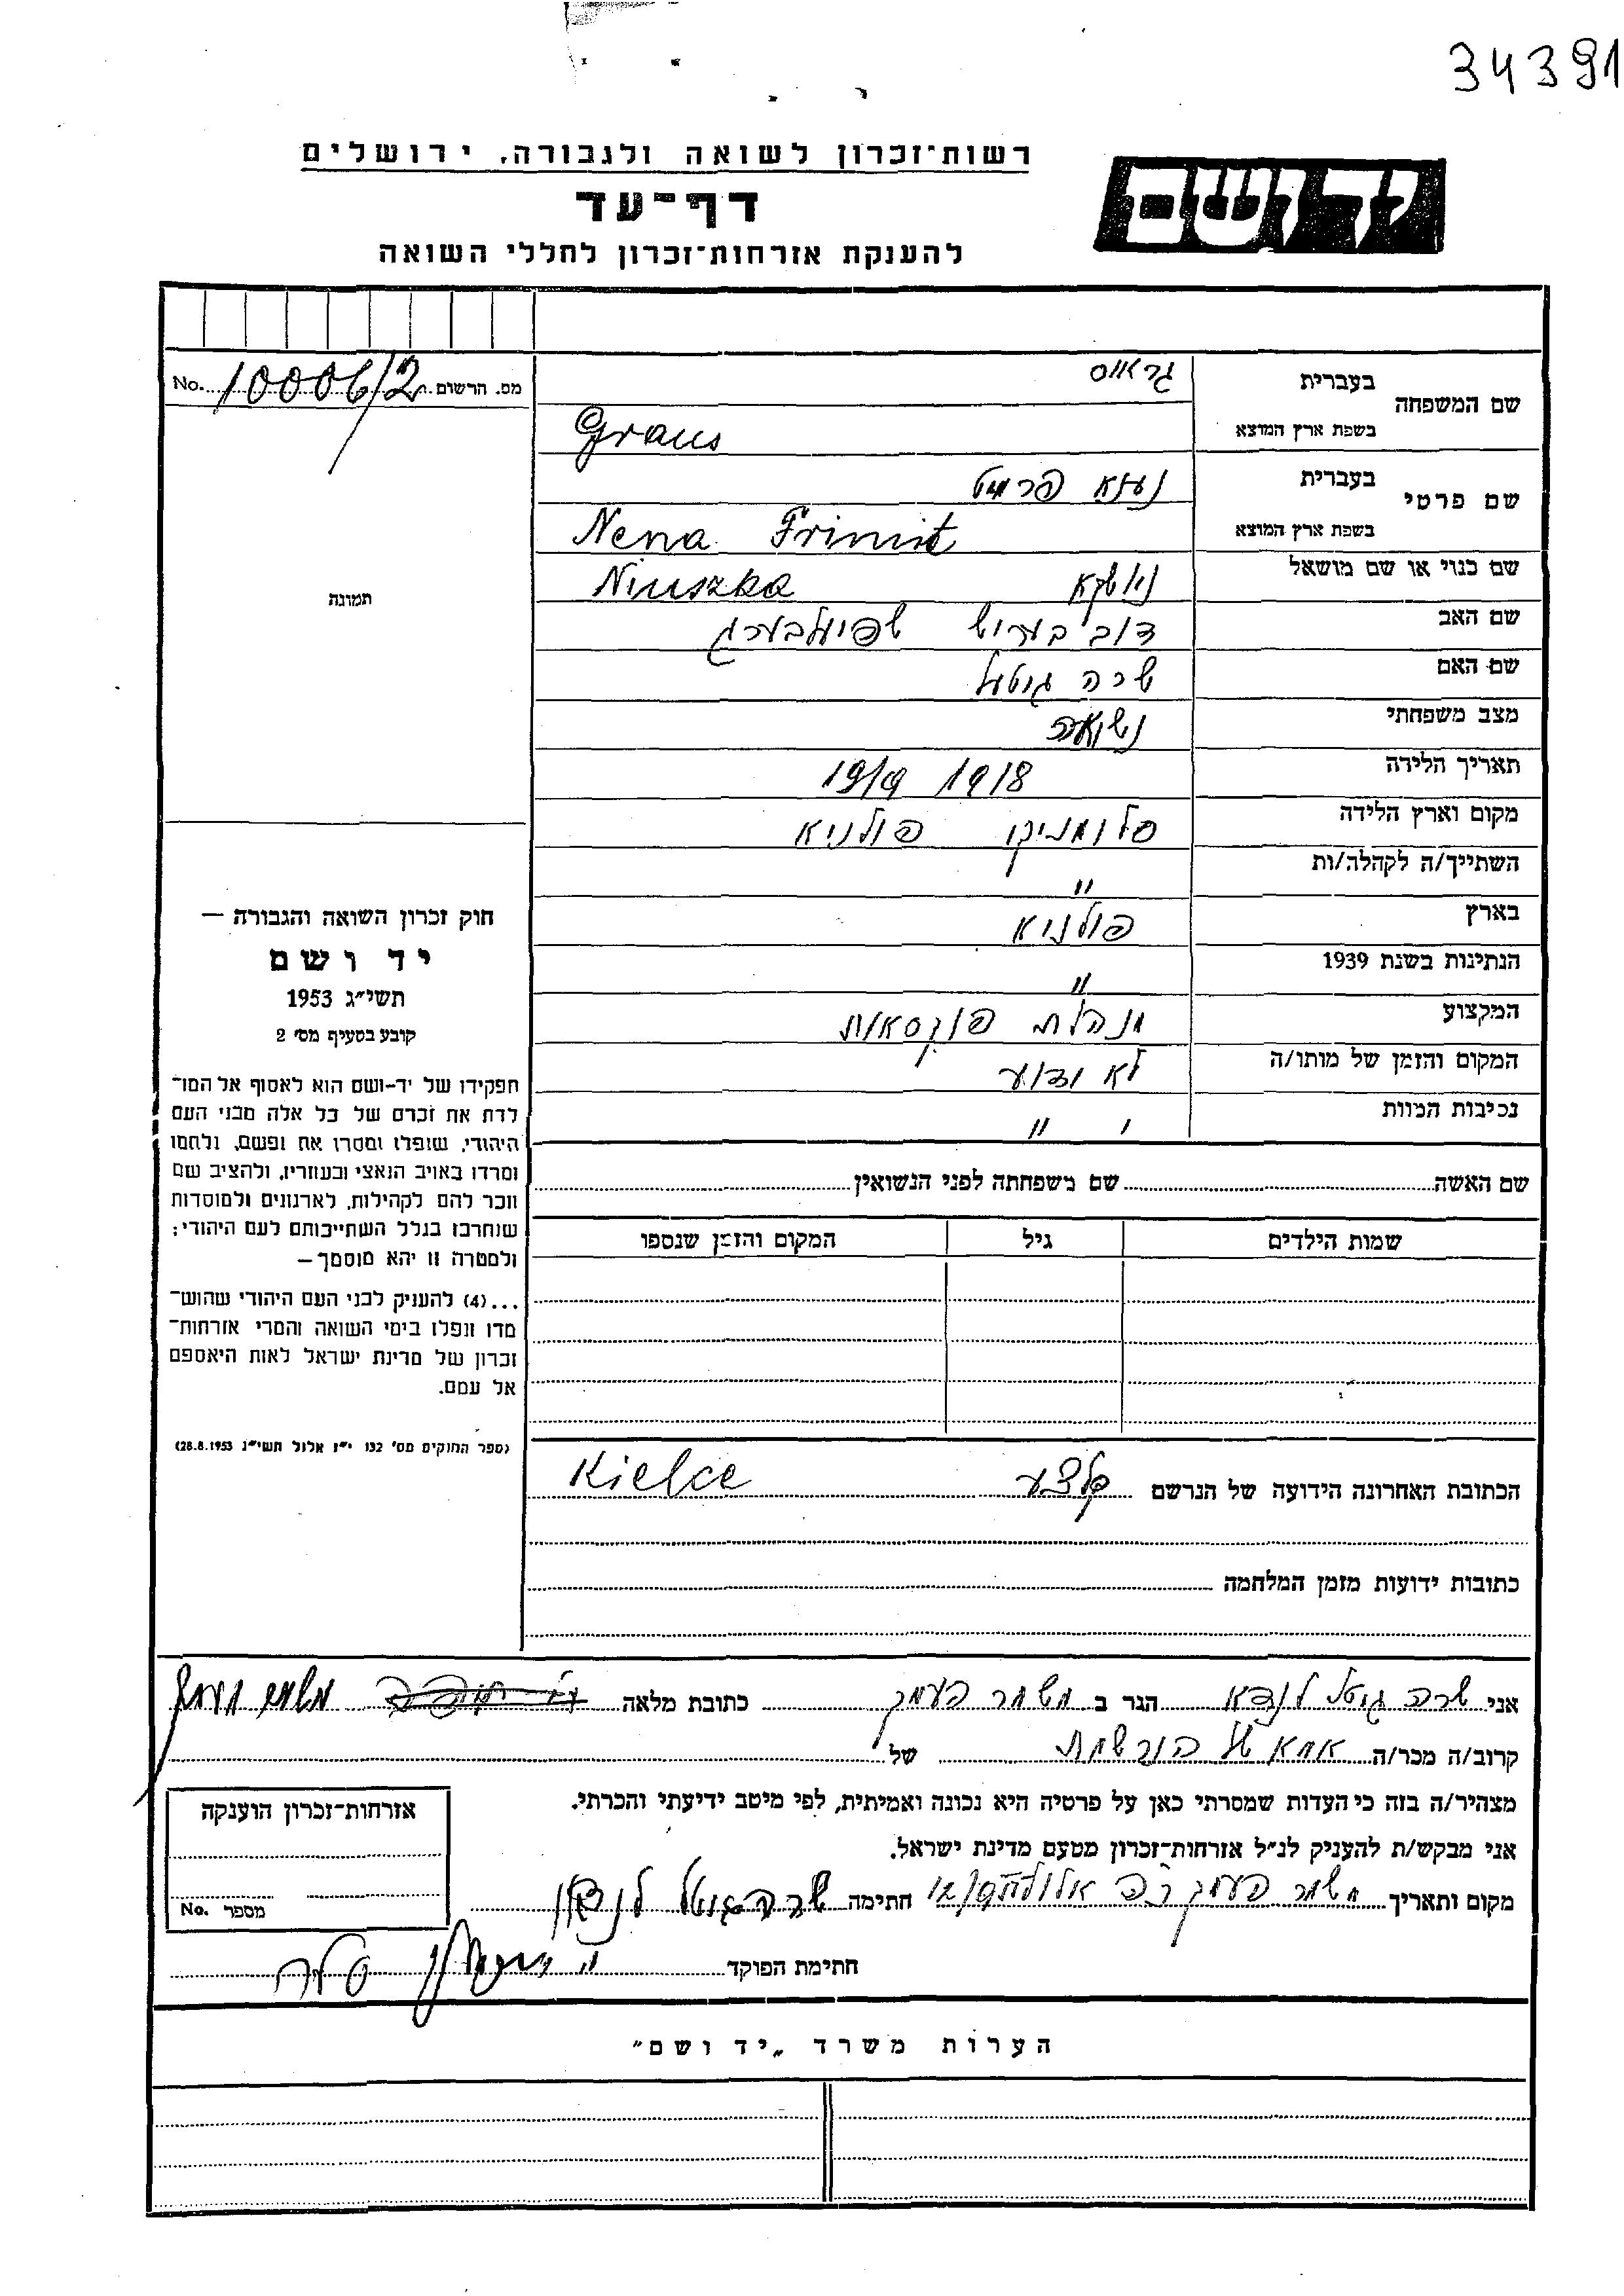 34391
רשות־זכרון לשואה ולגבורה, ירושלים
יד ושם
דף־עד
להענקת אזרחות־זכרון לחללי השואה
מס. הרשום No. 10006/2
שם המשפחה
בעברית גראוס
בשפת ארץ המוצא Graus
שם פרטי
בעברית נענא פרימיט
בשפת ארץ המוצא Nena Frimit
שם כנוי או שם מושאל ניושקא Niuszka
שם האב דוב בעריש שפילבערג
שם האם שרה גיטעל
מצב משפחתי נשואה
תאריך הלידה 1918 19/9
מקום וארץ הלידה פולניא
השתייך/ה לקהלה/ות "
בארץ פולניא
הנתינות בשנת 1939 "
המקצוע מנהלת
המקום והזמן של מותו/ה לא ידוע
נסיבות המוות "
שם האשה
שם משפחתה לפני הנשואין
שמות הילדים גיל המקום והזמן שנספו
הכתובת האחרונה הידועה של הנרשם קלצע Kielce
כתובות ידועות מזמן המלחמה
תמונה
חוק זכרון השואה והגבורה —
יד ושם
תשי״ג 1953
קובע בסעיף מס׳ 2
תפקידו של יד־ושם הוא לאסוף אל המו־
לדת את זכרם של כל אלה מבני העם
היהודי, שנפלו ומסרו את נפשם, נלחמו
ומרדו באויב הנאצי ובעוזריו, ולהציב שם
וזכר להם לקהילות, לארגונים ולמוסדות
שנחרבו בגלל השתייכותם לעם היהודי;
ולמטרה זו יהא מוסמך —
...(4) להעניק לבני העם היהודי שהוש־
מדו ונפלו בימי השואה והמרי אזרחות־
זכרון של מדינת ישראל לאות היאספם
אל עמם.
(ספר החוקים מס׳ 132 י״ז אלול תשי״ג 28.8.1953)
אני שרה גיטל לנדא הגר ב משמר העמק כתובת מלאה משמר העמק
קרוב/ה מכר/ה אמא של הנרשמת של
מצהיר/ה בזה כי העדות שמסרתי כאן על פרטיה היא נכונה ואמיתית, לפי מיטב ידיעתי והכרתי.
אני מבקש/ת להעניק לנ״ל אזרחות־זכרון מטעם מדינת ישראל.
מקום ותאריך משמר העמק אלול חתימה שרה גיטל לנדא
חתימת הפוקד
אזרחות־זכרון הוענקה
מספר No.
הערות משרד „יד ושם״